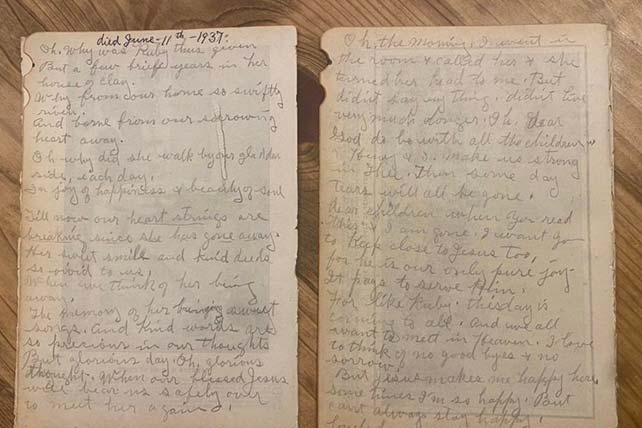 died June-11th-1937.
Oh, Why was Ruby thus given
But a few brief years in her
house of clay.
Why from our home so swiftly
riven.
And borne from our sorrowing
heart away.
Oh why did she walk by our gladden
side, each day,
In joy of happiness & beauty of soul
Till now our heart strings are
breaking since she has gone away.
Her sweet smile and kind deeds
so to us,
When we think of her being
away.
The memory of her bringing sweet
songs. And kind words are
so precious in our thoughts
But glorious day. Oh, glorious
thought. When our blessed Jesus
will bear us safely over
to meet her again.
Oh, the morning, I went in
the room & called her & she
turned her head to me. But
didn't say any thing. didn't live
very much longer. Oh. Dear
God do be with all the children &
& I. make us strong
in Thee. Then some day
tears will all be gone.
dear children when you read
this & I am gone. I want you
to keep close to Jesus too,
for he is our only pure joy-
It pays to serve Him.
For like Ruby. this day is
coming to all. And we all
want to meet in Heaven. I love
to think of no good byes & no
sorrow.
But Jesus makes me happy here,
some times I'm so happy. But
can't always stay happy.